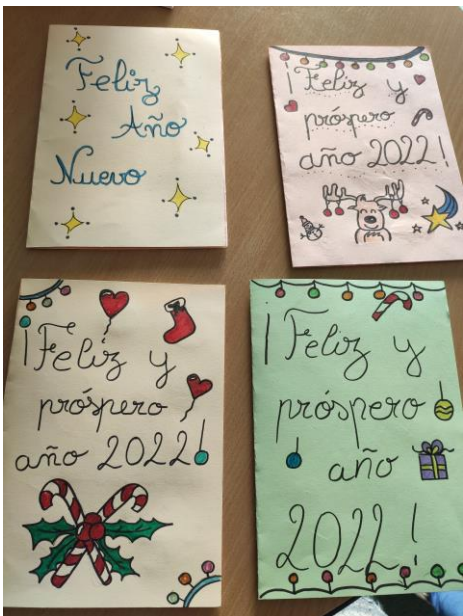 Feliz
Año
Nuevo
¡Feliz y
próspero
año 2022!
¡Feliz y
próspero
año 2022!
¡Feliz y
próspero
año
2022!